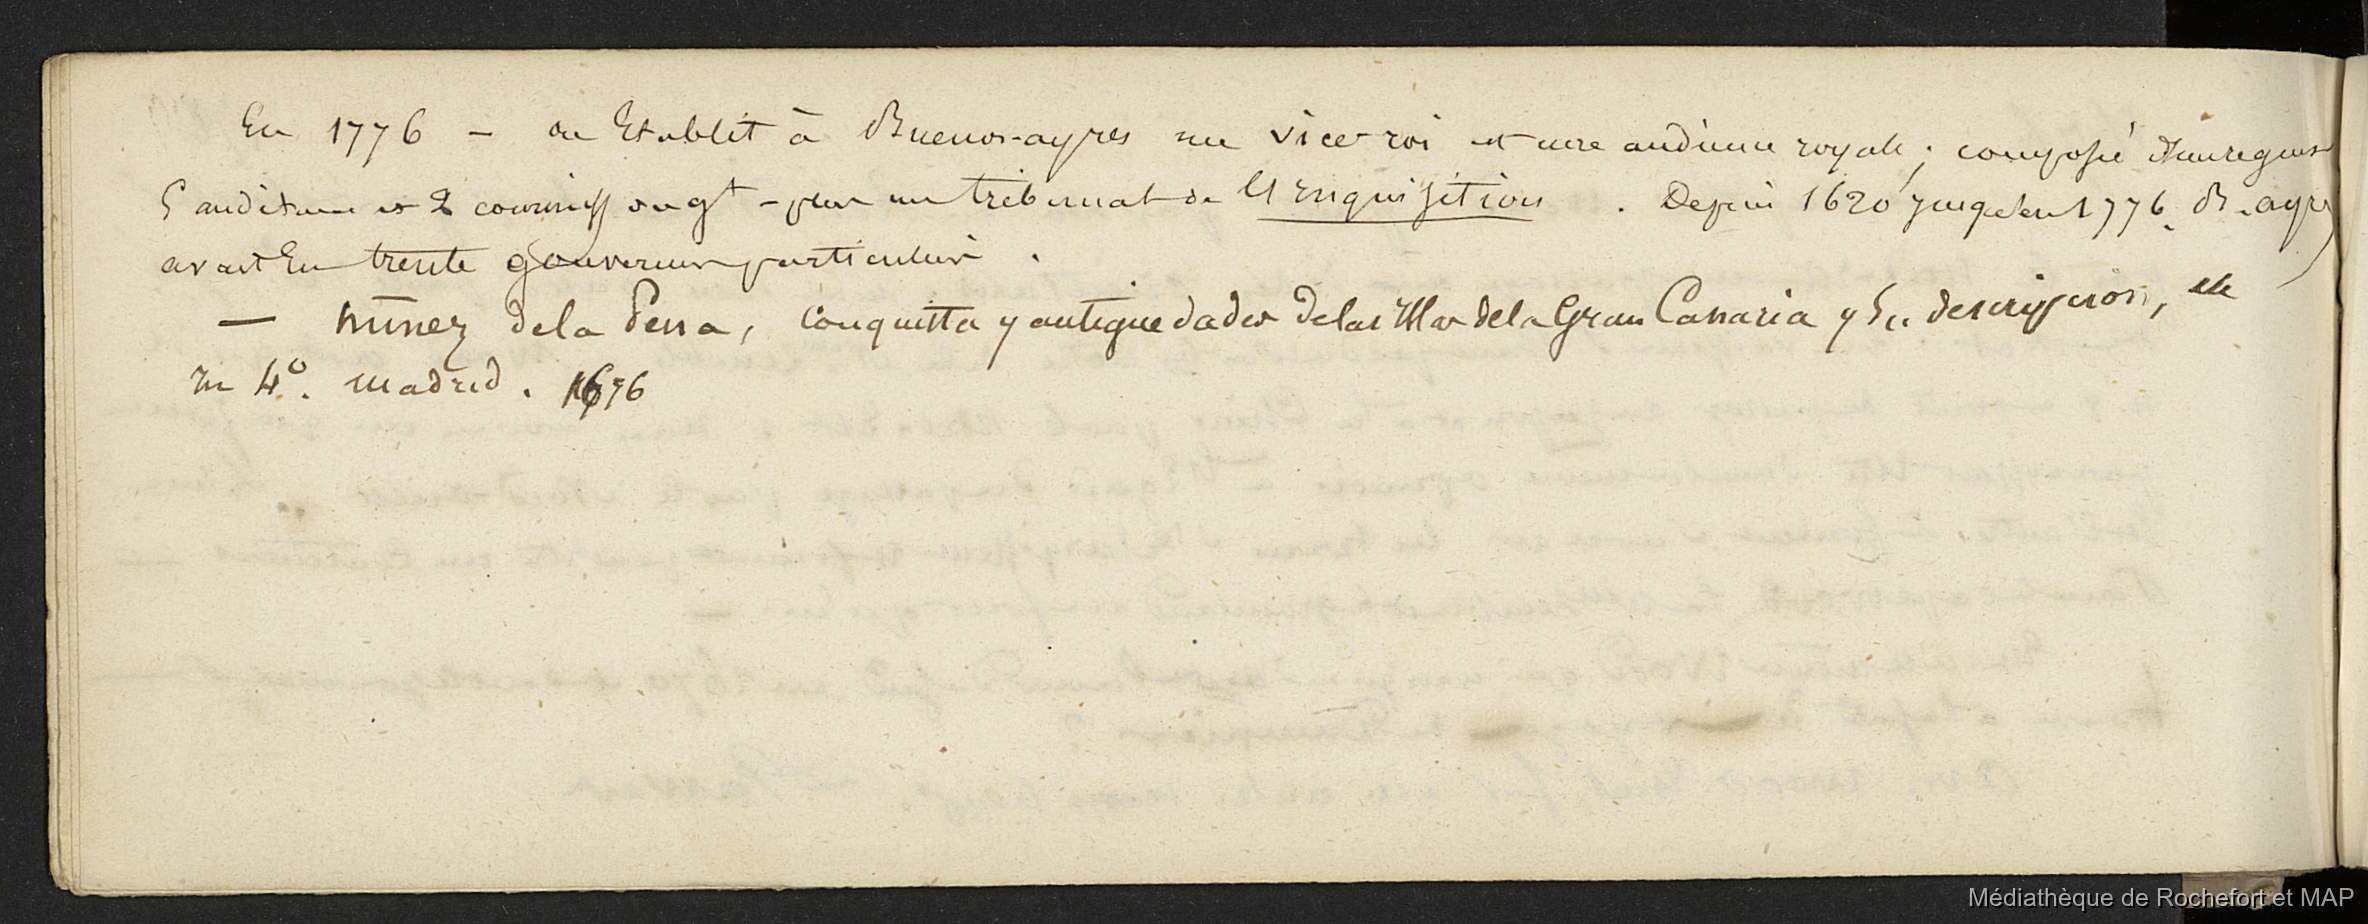 En 1776 – on Etablit à Buenos-ayres un vice roi et une audience royale; composé d'un regent
5 auditeurs et 2 commiss – plus un tribunal de l'Enquisition. Depuis 1620 jusqu'en 1776. B. ayres
avait Eu trente gouverneurs particuliers.
— nũnez de la Pena, Conquista y antiguedades de las Illas de la Gran Canaria y Su descripcion, etc
in 4°. madrid. 1676
Médiathèque de Rochefort et MAP